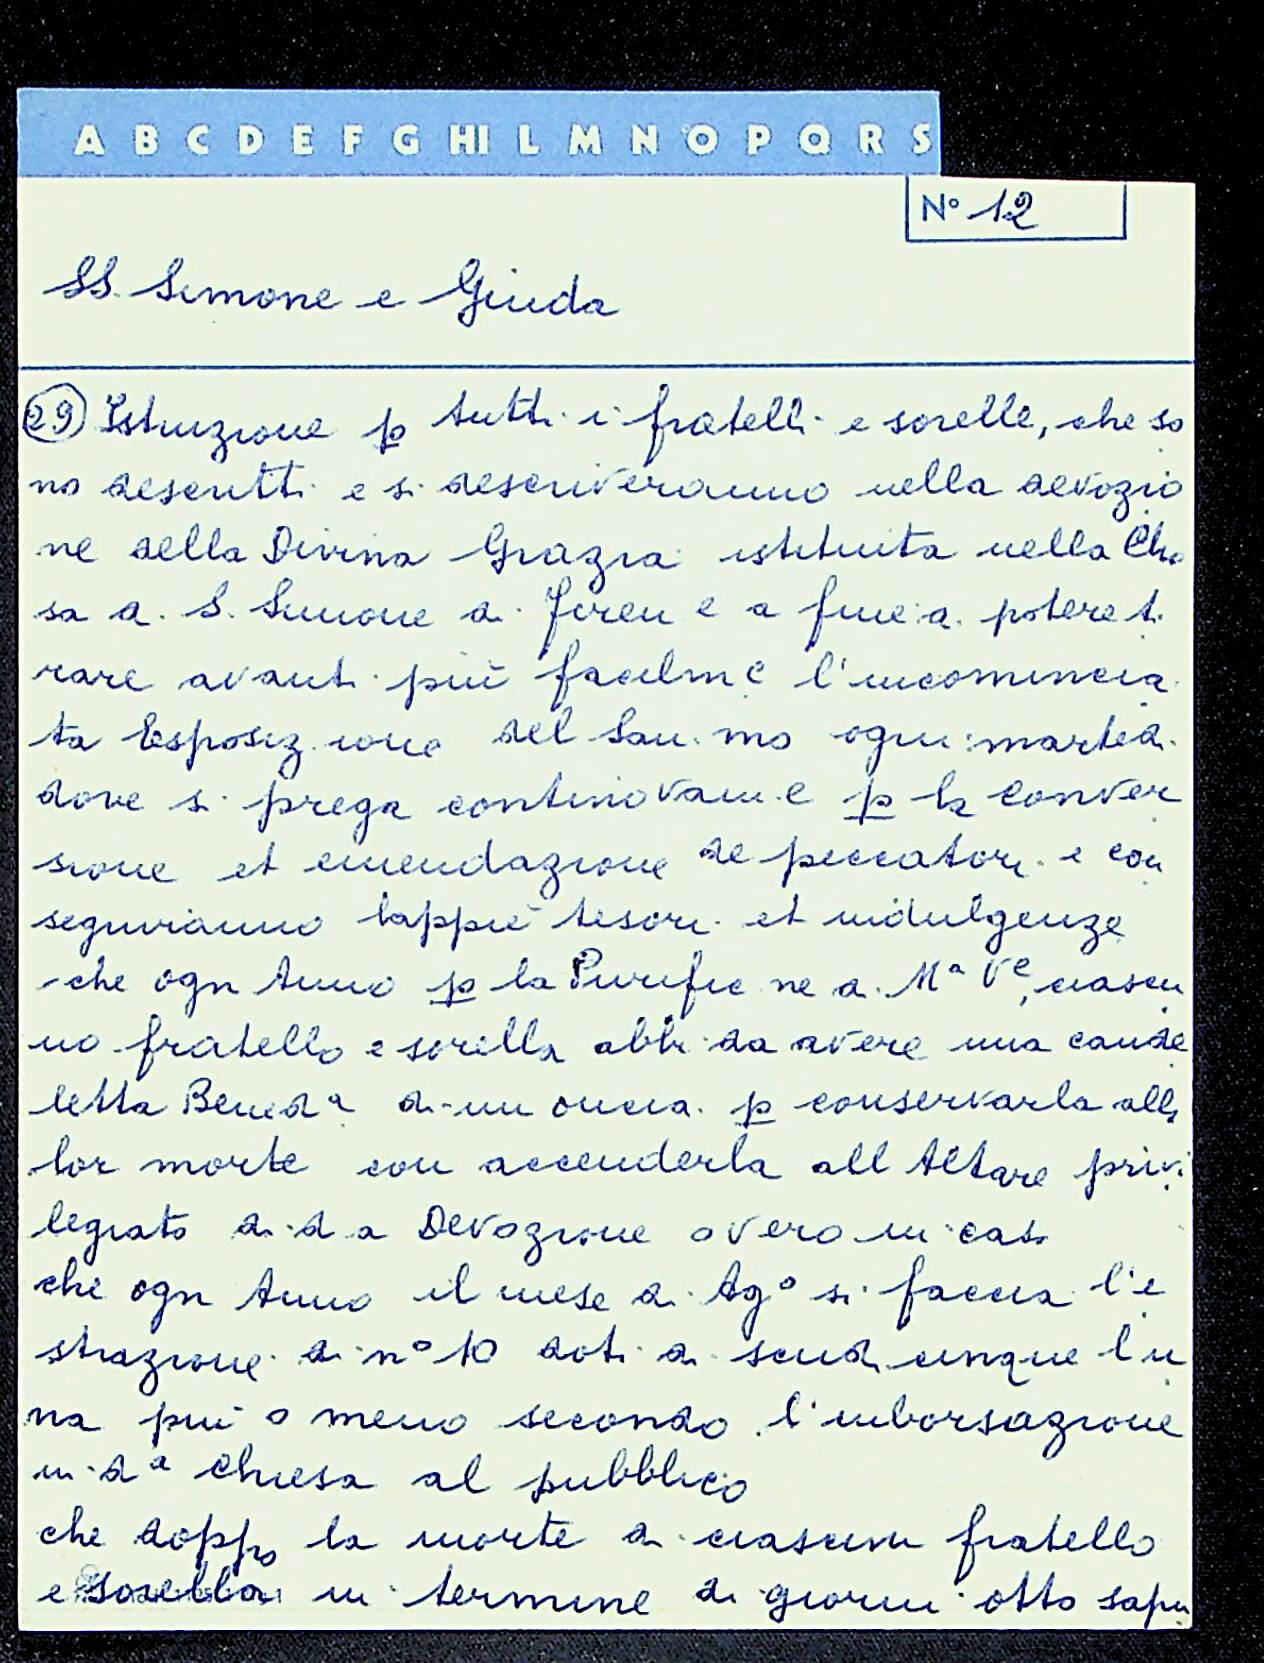 A B C D E F G HI L M N O P Q R S
N° 12
SS. Simone e Giuda
29 Istruzione p tutti i fratelli e sorelle, che so
no descritti e si descriveranno nella devozio
ne della Divina Grazia istituita nella Chie
sa di S. Simone di Firen e a fine di potere ti
rare avanti più facilm e l'incomincia
ta Esposizione del San.mo ogni martedi
dove si prega continovam.e p la conver
sione et emendazione de peccatori e con
seguiranno tesori et indulgenze
che ogn Anno p la Purific ne di Mª Vᵉ, ciascu
no fratello e sorella abbi da avere una cande
letta Benedª di un oncia p conservarla alla
lor morte con accenderla all Altare privi
legiato di d a Devozione overo in casa
che ogn Anno il mese di Agº si faccia l'e
strazione di nº 10 doti di scudi cinque l'u
na più o meno secondo l'imborsazione
in dª chiesa al pubblico
che doppo la morte di ciascun fratello
e sorella in termine di giorni otto sapu